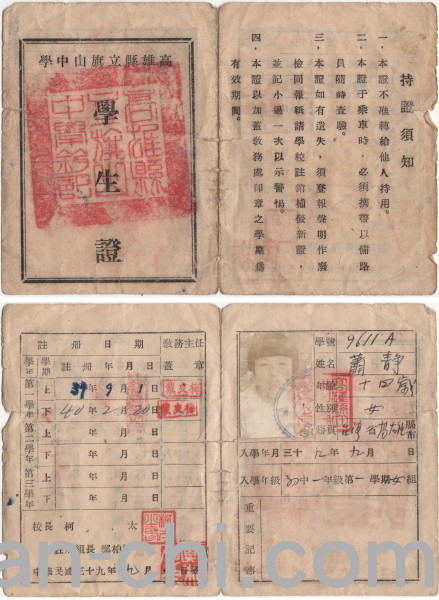 高雄縣立旗山中學
學生證
持證須知
一．本證不准轉給他人持用。
二．本證于乘車時，必須携帶以備路
員隨時查驗。
三．本證如有遺失，須登報聲明作廢
檢同報紙請學校註銷補發新證，
並記小過一次以示警惕。
四．本證以加蓋教務處印章之學期爲
有效期間。
註冊日期
教務主任
蓋章
學年
學期
註冊年月日
第一學年
上
39年9月1日
下
40年2月20日
第二學年
上
年月日
下
年月日
第三學年
上
年月日
下
年月日
校長柯 太
註冊組長
中華民國三十九年九月 日
學號
9611A
姓名
蕭靜
年齡
十四歲
性別
女
籍貫
台灣省 縣市
入學年月三十九年九月 日
入學年級初中一年級第一學期女組
重要記事
an-chi.com